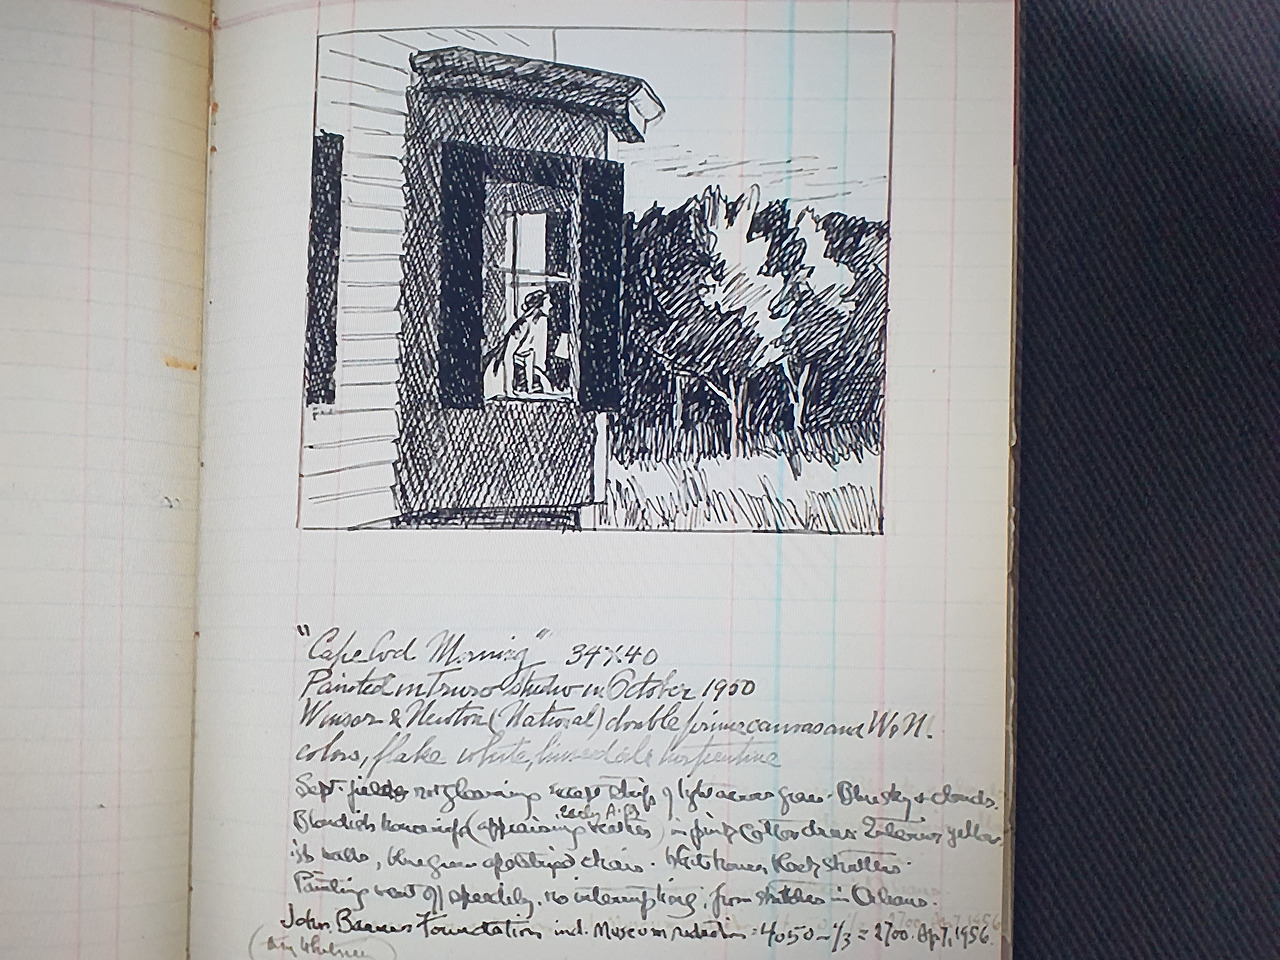 "Cape Cod Morning" 34X40
Painted in Truro studio in October 1950
Winsor & Newton (National) double prime canvas and W&N.
colors, flake white, linseed oil & turpentine
Sept. fields not gleaming except strip of light across grass. Blue sky & clouds.
Blondish housewife (appraising weather early A.M.) in pink cotton dress. Interior yellow
ish walls, blue green chair. White house, black shutters.
Painting went off speedily, no interruptions, from sketches in Orleans.
John Foundation incl. Museum reduction = 4050 - 1/3 = 2700. Apr 7, 1956.